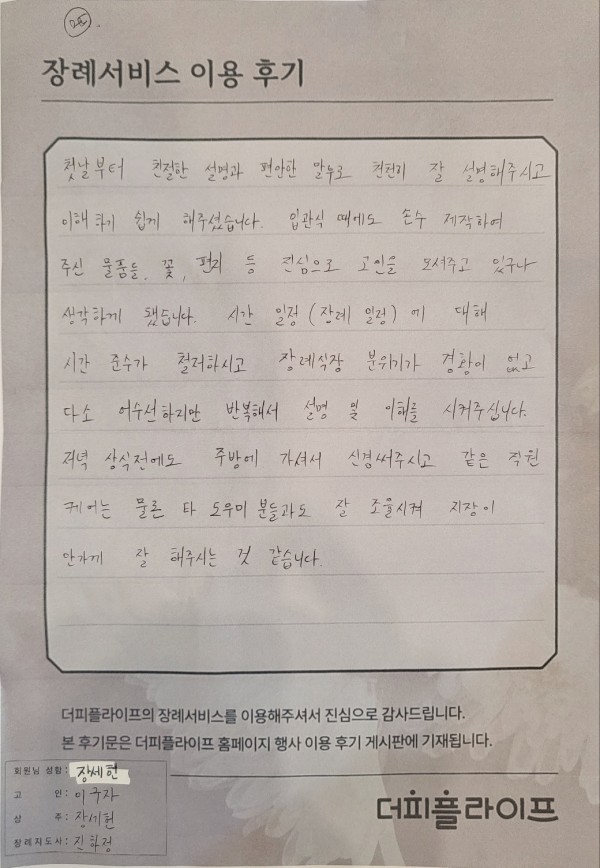 장례서비스 이용 후기
첫날부터 친절한 설명과 편안한 말투로 천천히 잘 설명해주시고
이해하기 쉽게 해주셨습니다. 입관식 때에도 손수 제작하여
주신 물품들, 꽃, 편지 등 진심으로 고인을 모셔주고 있구나
생각하게 됐습니다. 시간 일정 (장례 일정) 에 대해
시간 준수가 철저하시고 장례식장 분위기가 경황이 없고
다소 어수선하지만 반복해서 설명 및 이해를 시켜주십니다.
저녁 상식전에도 주방에 가셔서 신경써주시고 같은 직원
케어는 물론 타 도우미 분들과도 잘 조율시켜 지장이
안가게 잘 해주시는 것 같습니다.
더피플라이프의 장례서비스를 이용해주셔서 진심으로 감사드립니다.
본 후기문은 더피플라이프 홈페이지 행사 이용 후기 게시판에 기재됩니다.
회원님 성함: 장세현
고 인: 이구자
상 주: 장세현
장례지도사: 진하정
더피플라이프